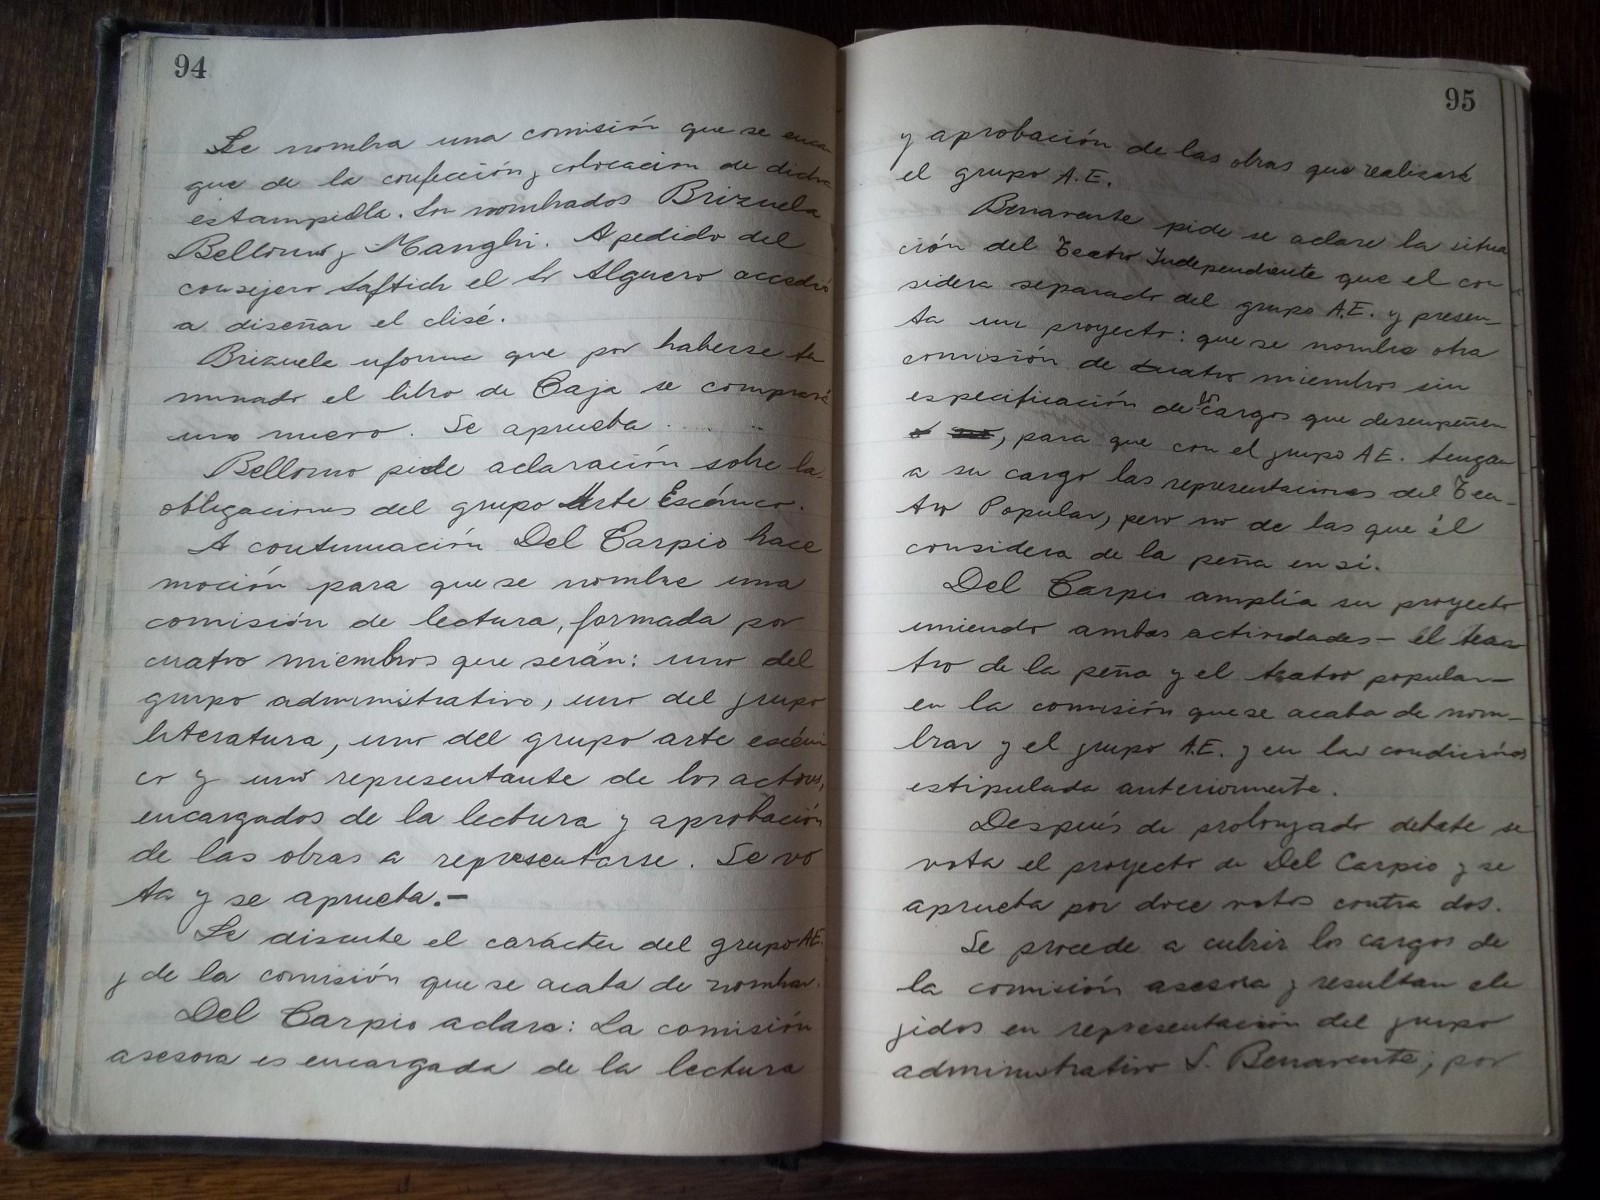 94
Se nombra una comisión que se encar
gue de la confección y colocacion de dicha
estampilla. Son nombrados Brizuela
Bellomo y Manghi. A pedido del
consejero Saftich el Sr Alguero accedió
a diseñar el clisé.
Brizuela informa que por haberse ter
minado el libro de Caja se comprará
uno nuevo. Se aprueba.
Bellomo pide aclaración sobre las
obligaciones del grupo Arte Escénico.
A continuación Del Carpio hace
moción para que se nombre una
comisión de lectura, formada por
cuatro miembros que serán: uno del
grupo administrativo, uno del grupo
literatura, uno del grupo arte escéni
co y uno representante de los actores,
encargados de la lectura y aprobación
de las obras a representarse. Se vo
ta y se aprueba.-
Se discute el carácter del grupo A.E.
y de la comisión que se acaba de nombrar.
Del Carpio aclara: La comisión
asesora es encargada de la lectura
95
y aprobación de las obras que realizará
el grupo A.E.
Benavente pide se aclare la situa
ción del Teatro Independiente que el con
sidera separado del grupo A.E. y presen-
ta un proyecto: que se nombre otra
comisión de cuatro miembros sin
especificación de los cargos que desempeñen
, para que con el grupo A.E. tengan
a su cargo las representaciones del Tea-
tro Popular, pero no de las que él
considera de la peña en sí.
Del Carpio amplía su proyecto
uniendo ambas actividades - el tea
tro de la peña y el teatro popular -
en la comisión que se acaba de nom-
brar y el grupo A.E. y en las condiciones
estipulada anteriormente.
Después de prolongado debate se
vota el proyecto de Del Carpio y se
aprueba por doce votos contra dos.
Se procede a cubrir los cargos de
la comisión asesora y resultan ele
jidos en representación del grupo
administrativo S. Benavente; por